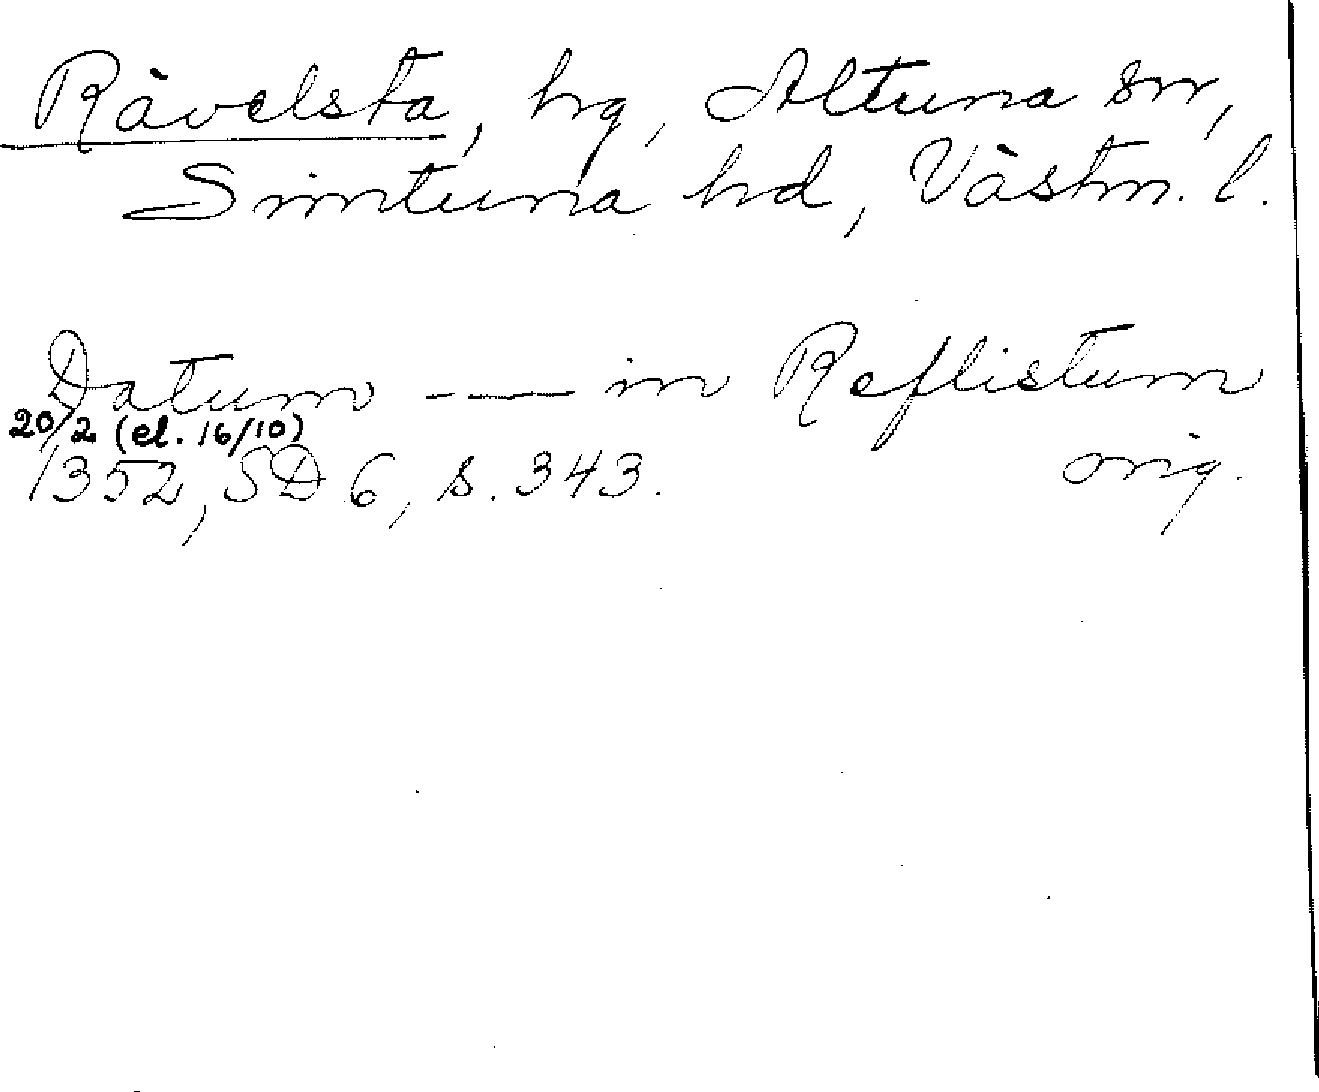 Rävelsta, hg, Altuna sn,
Simtuna hd, Västm. l.
Datum — — in Reflistum
20/2 (el. 16/10)
1352, SD 6, s. 343. orig.